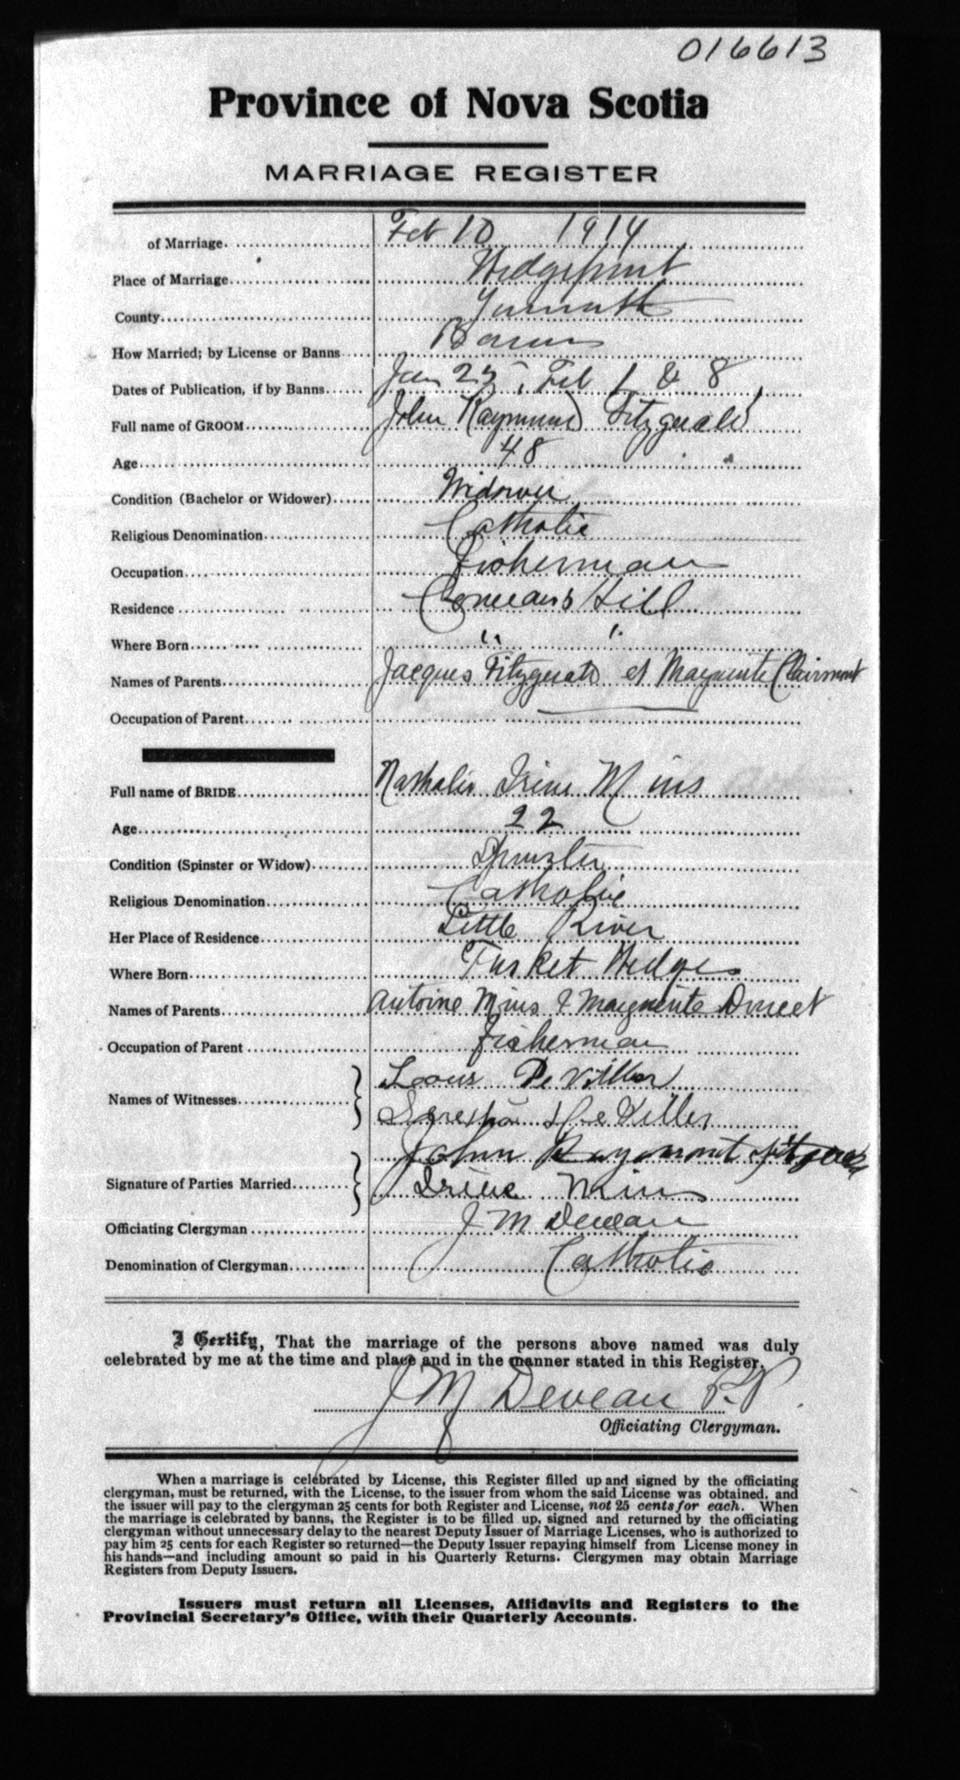 016613
Province of Nova Scotia
MARRIAGE REGISTER
of Marriage Feb 10 1914
Place of Marriage Wedgeport
County Yarmouth
How Married; by License or Banns Banns
Dates of Publication, if by Banns Jan 25, Feb 1 & 8
Full name of GROOM John Raymond Fitzgerald
Age 48
Condition (Bachelor or Widower) Widower
Religious Denomination Catholic
Occupation Fisherman
Residence Comeaus Hill
Where Born " "
Names of Parents Jacques Fitzgerald et Marguerite Clairmont
Occupation of Parent
Full name of BRIDE Nathalie Irene Mius
Age 22
Condition (Spinster or Widow) Spinster
Religious Denomination Catholic
Her Place of Residence Little River
Where Born Tusket Wedge
Names of Parents Antoine Mius & Marguerite Doucet
Occupation of Parent Fisherman
Names of Witnesses Louis DeViller
De Viller
Signature of Parties Married John Raymont
Irene Mius
Officiating Clergyman J M Deveau
Denomination of Clergyman Catholic
I Certify, That the marriage of the persons above named was duly
celebrated by me at the time and place and in the manner stated in this Register.
J M Deveau P.P.
Officiating Clergyman.
When a marriage is celebrated by License, this Register filled up and signed by the officiating
clergyman, must be returned, with the License, to the issuer from whom the said License was obtained, and
the issuer will pay to the clergyman 25 cents for both Register and License, not 25 cents for each. When
the marriage is celebrated by banns, the Register is to be filled up, signed and returned by the officiating
clergyman without unnecessary delay to the nearest Deputy Issuer of Marriage Licenses, who is authorized to
pay him 25 cents for each Register so returned—the Deputy Issuer repaying himself from License money in
his hands—and including amount so paid in his Quarterly Returns. Clergymen may obtain Marriage
Registers from Deputy Issuers.
Issuers must return all Licenses, Affidavits and Registers to the
Provincial Secretary's Office, with their Quarterly Accounts.